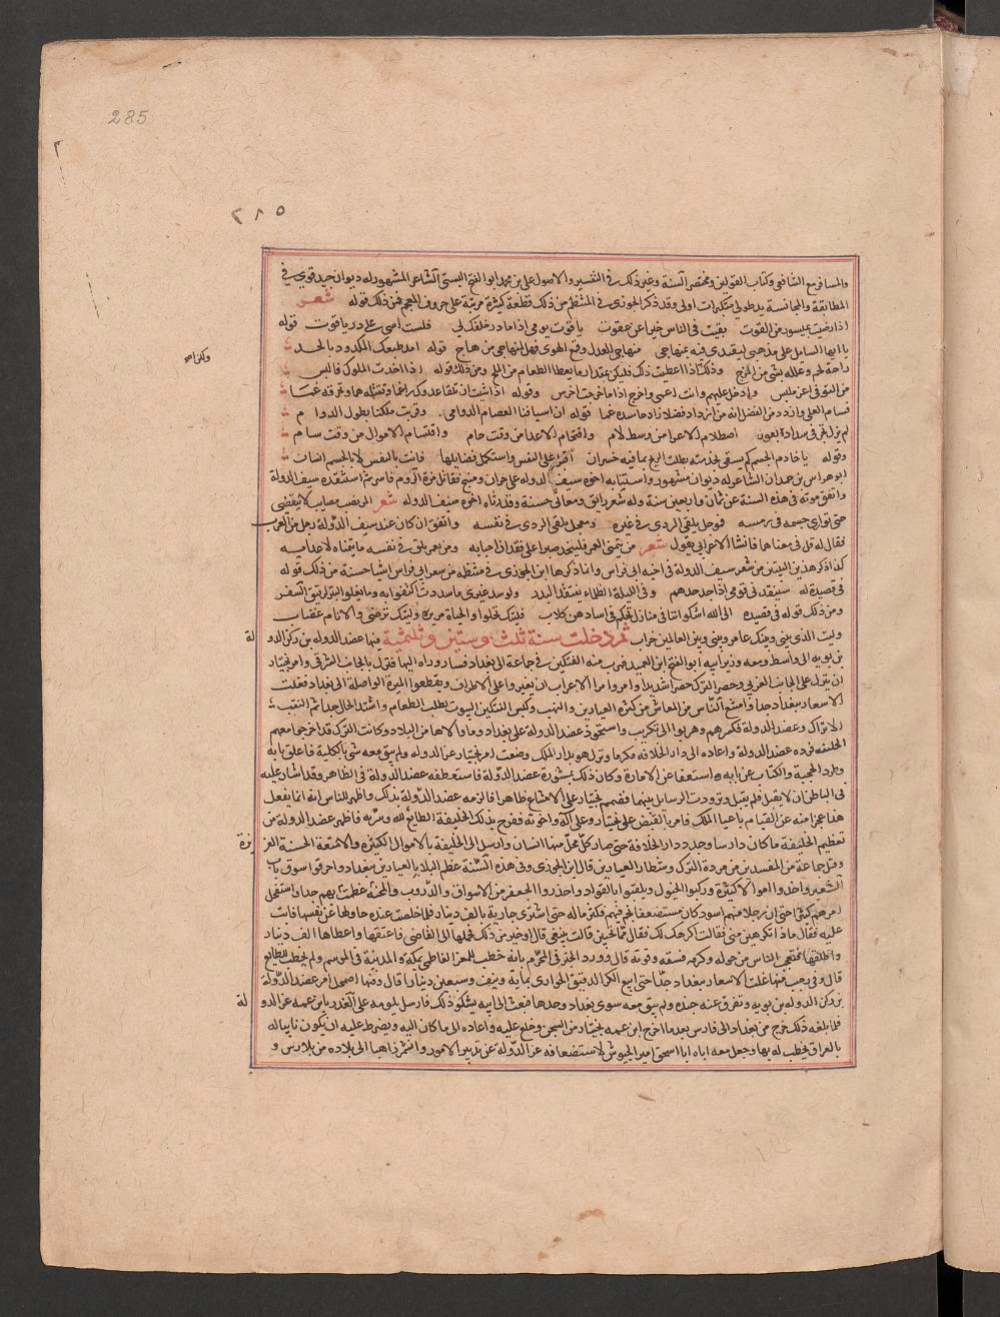 285
٢٨٥
والمسافر مع الشافعي وكتاب القولين ومختصر السنة وغير ذلك في التفسير والاصول علي بن محمد ابو الفتح البستي الشاعر المشهور له ديوان جيد قوي في
المطابقة والمجانسة يد طولى مبتكرات اولى وقد ذكر الجوزي في المنتظم من ذلك قطعة كبيرة مرتبة على حروف المعجم فمن ذلك قوله شعر
اذا رضيت بميسور من القوت بقيت في الناس حرا غير ممقوت ياقوت يومي اذا ما در خلفك لي فلست اسى على در ياقوت قوله
يا ايها السائل عن مذهبي ليقتدي فيه بمنهاجي منهاجي العدل وقمع الهوى فهل لمنهاجي من هاج قوله افد طبعك المكدود بالجد
راحة لجم وعلله بشي من المزح ولكن اذا اعطيت ذلك فليكن بمقدار ما يعطا الطعام من الملح ومن ذلك قوله اذا خدمت الملوك فالبس
من التوقي اعز ملبس وادخل عليهم وانت اعمى واخرج اذا ما خرجت اخرس وقوله اذا شئت ان تلقا عدوك راغما وتقتله هما وتحرقه غما
فسام العلى وازدد من الفضل انه من ازداد فضلا زاد حاسده غما قوله ان اسيافنا العضاب الدوامي وفرت ملكنا بطول الدوام
لم نزل نحن في سداد ثغور اصطلام الاعدا من وسط لام واقتحام الاعدا من وقت حام واقتسام الاموال من وقت سام
وقوله يا خادم الجسم كم يشقى بخدمته يطلب الربح مما فيه خسران اقبل على النفس واستكمل فضايلها فانت بالنفس لا بالجسم انسان
ابو فراس بن حمدان الشاعر له ديوان مشهور واستنابه اخوه سيف الدولة على حران ومنبج فقاتل مرة الروم فاسروه ثم استنقذه سيف الدولة
واتفق موته في هذه السنة عن ثمان واربعين سنة وله شعر رايق ومعاني حسنة وقد رثاه اخوه سيف الدولة شعر المرء نصب مصايب لا ينقضى
حتى توارى جسمه في رمسه فمؤجل يلقى الردى في غيره ومعجل يلقى الردى في نفسه واتفق ان كان عند سيف الدولة رجل من العرب
فقال له قل في معناها فانشا الاعرابي يقول شعر من يتمنى العمر فليتخذ صبرا على فقد احبابه ومن يعمر يلق في نفسه ما يتمناه لاعدايه
كذا ذكر هذين البيتين من شعر سيف الدولة في اخيه ابي فراس وانما ذكرها ابن الجوزي في منتظمه من شعر ابي فراس اشيا حسنة من ذلك قوله
في قصيدة له سيفقدني قومي اذا جد جدهم وفي الليلة الظلماء يفتقد البدر ولو سد غيري ما سددت اكتفوا به وما يغلوا التبر لو نفق الصفر
ومن ذلك قوله في قصيده الى الله اشكو اننا في منازل تحكم في اسادهن كلاب فليتك تحلوا والحياة مريرة وليتك ترضى والانام غضاب
وليت الذي بيني وبينك عامر وبيني وبين العالمين خراب ثم دخلت سنة ثلث وستين وثلثمية فيها عضد الدوله بن ركن الدولة
بن بويه الى واسط ومعه وزير ابيه ابو الفتح ابن العميد فهرب منه الفتكين في جماعة الى بغداد فسار وراه اليها فنزل بالجانب الشرقي وامر بختيار
ان ينزل على الجانب الغربي وحصر الترك حصرا شديدا وامر امرا الاعراب ان يغيروا على الاطراف ويقطعوا الميرة الواصلة الى بغداد فغلت
الاسعار ببغداد جدا وامتنع الناس من المعاش من كثرة العيارين والنهب وكبس الفتكين البيوت بطلب الطعام واشتد الحال جدا ثم التقت
الاتراك وعضد الدولة فكسرهم وهربوا الى تكريت واستحوذ عضد الدولة على بغداد وما والاها من البلاد وكانت الترك قد اخرجوا معهم
الخليفة فرده عضد الدولة واعاده الى دار الخلافة مكرما ونزل هو بدار الملك وضعف امر بختيار عز الدوله ولم يبق معه شي بالكلية فاغلق بابه
وطرد الحجبة والكتاب عن بابه واستعفا عن الامارة وكان ذلك بمشورة عضد الدولة فاستعطفه عضد الدولة في الظاهر وقد اشار عليه
في الباطن ان لا يقبل فلم يقبل وترددت الرسايل بينهما فصمم بختيار على الامتناع ظاهرا فالزمه عضد الدولة بذلك واظهر للناس انه انما يفعل
هذا عجزا منه عن القيام باعبا الملك فامر بالقبض على بختيار وعلى اهله واخوته ففرح بذلك الخليفة الطائع لله وسر به فاظهر عضد الدولة من
تعظيم الخليفة ما كان دارسا وجدد دار الخلافة حتى صار كل محل منها انسا وارسل الى الخليفة بالاموال الكثيرة والامتعة الحسنة العزيزة
وقتل جماعة من المفسدين من مردة الترك وشطار العيارين قال ابن الجوزي وفي هذه السنة عظم البلا بالعيارين ببغداد واحرقوا سوق باب
الشعير واخذوا اموالا كثيرة وركبوا الخيول وتلقبوا بالقواد واخذوا الخفر من الاسواق والدروب وعظمت المحنة بهم جدا واستفحل
امرهم كثيرا حتى ان رجلا منهم اسود كان مستضعفا نجم فيهم فكثر ماله حتى اشترى جارية بالف دينار فلما خلصت عنده حاولها عن نفسها فابت
عليه فقال ماذا تكرهين مني فقالت اكرهك كلك فقال فما تحبين قالت تبيعني قال او خير من ذلك فحملها الى القاضي فاعتقها واعطاها الف دينار
واطلقها فتعجب الناس من حلمه وكرمه مع فسقه وقوته قال وورد الخبر في المحرم بانه خطب للمعز الفاطمي بمكة والمدينة في الموسم ولم يخطب للطايع
قال وفي رجب منها غلت الاسعار ببغداد جدا حتى ابيع الكر الدقيق الحواري بماية ونيف وسبعين دينارا قال وفيها اضمحل امر عضد الدولة
بن ركن الدوله بن بويه وتفرق عنه جنده ولم يبق معه سوى بغداد وحدها فبعث الى ابيه يشكو ذلك فارسل يلومه على الغدر بابن عمه عز الدولة
فلما بلغه ذلك خرج من بغداد الى فارس بعد ما اخرج ابن عمه بختيار من السجن وخلع عليه واعاده الى ما كان اليه وشرط عليه ان يكون نايبا له
بالعراق يخطب له بها وجعل معه اخاه ابا اسحق امير الجيوش لاستضعافه عز الدولة عن تدبير الامور واستمر ذاهبا الى بلاده من بلاد فارس و